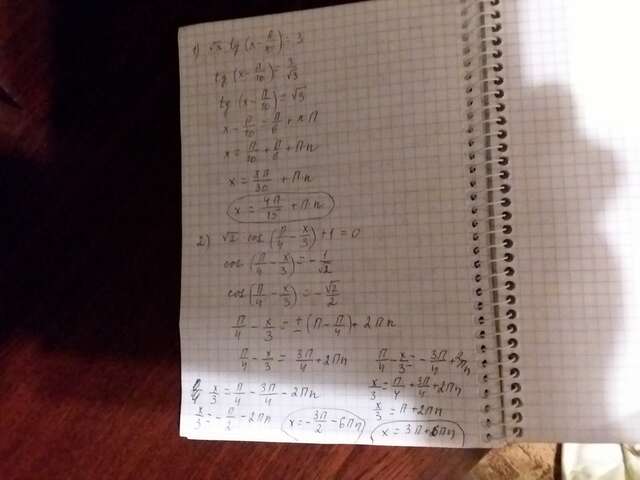 1) √3 tg(x - π/10) = 3
tg(x - π/10) = 3/√3
tg(x - π/10) = √3
x - π/10 =
x = π/10 + + πn
x = + πn
x = + πn
2) √2 cos(π/4 - x/3) + 1 = 0
cos(π/4 - x/3) = -1/√2
cos(π/4 - x/3) = -√2/2
π/4 - x/3 = ±(π - π/4) + 2πn
π/4 - x/3 = 3π/4 + 2πn π/4 - x/3 = -3π/4 + 2πn
x/3 = π/4 - 3π/4 - 2πn x/3 = π/4 + 3π/4 + 2πn
x/3 = -π/2 - 2πn x/3 = π + 2πn
x = -3π/2 - 6πn x = 3π + 6πn